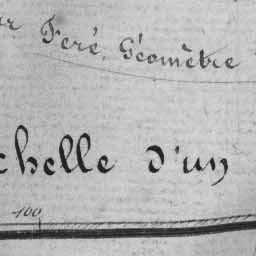 Feré, Géomètre
chelle d'un
100